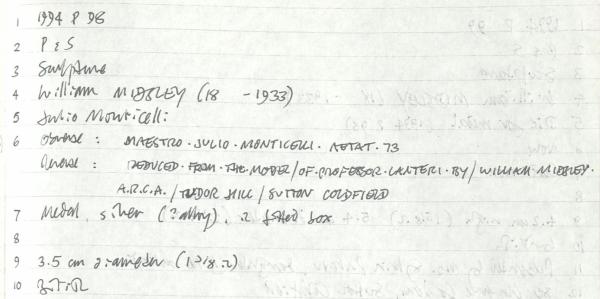 1 1994 P 98
2 P & S
3 Sculpture
4 William MIDGLEY (18 -1933)
5 Julio Monticelli
6 Obverse : MAESTRO · JULIO · MONTICELLI · AETAT · 73
Reverse : REDUCED · FROM · THE · MODEL / OF · PROFESSOR · LANTERI · BY / WILLIAM MIDGLEY ·
A.R.C.A. / TUDOR HILL / SUTTON COLDFIELD
7 Medal, silver (? alloy), fitted box
8
9 3.5 cm diameter
10